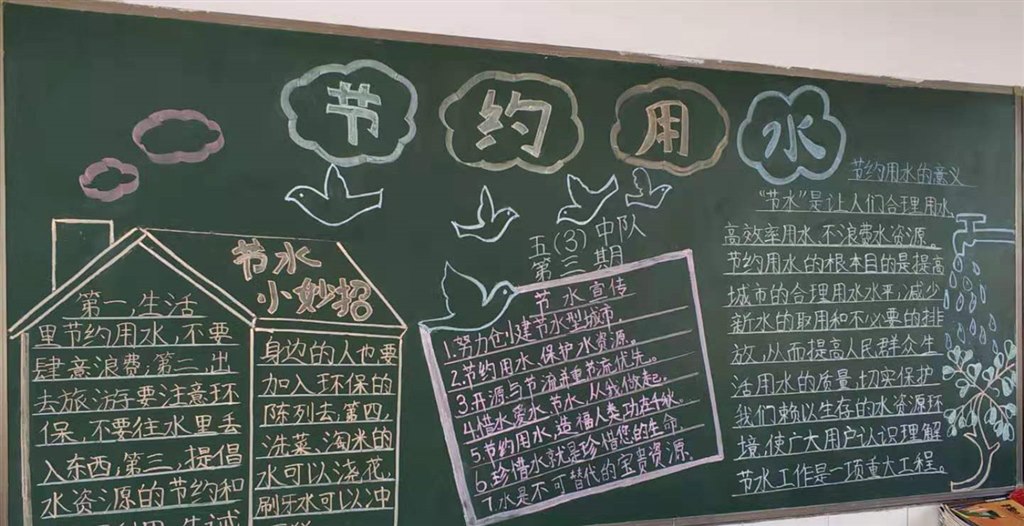 节约用水
五(3)中队
第三期
节水
小妙招
第一,生活
里节约用水,不要
肆意浪费;第二,出
去旅游要注意环
保,不要往水里丢
入东西;第三,提倡
水资源的节约和
身边的人也要
加入环保的
陈列去。第四,
洗菜、淘米的
水可以浇花,
刷牙水可以冲
节水宣传
1.努力创建节水型城市。
2.节约用水、保护水资源。
3.开源与节流并重节流优先。
4.惜水、爱水、节水、从我做起。
5.节约用水,造福人类,功在千秋。
6.珍惜水就是珍惜您的生命
7.水是不可替代的宝贵资源。
节约用水的意义
“节水”是让人们合理用水,
高效率用水,不浪费水资源。
节约用水的根本目的是提高
城市的合理用水水平,减少
新水的取用和不必要的排
放,从而提高人民群众生
活用水的质量,切实保护
我们赖以生存的水资源环
境,使广大用户认识理解
节水工作是一项重大工程。